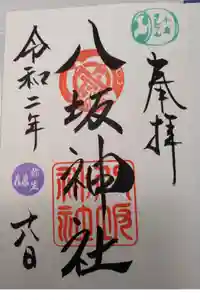 奉拝
八坂神社
令和二年
弥生
十六日